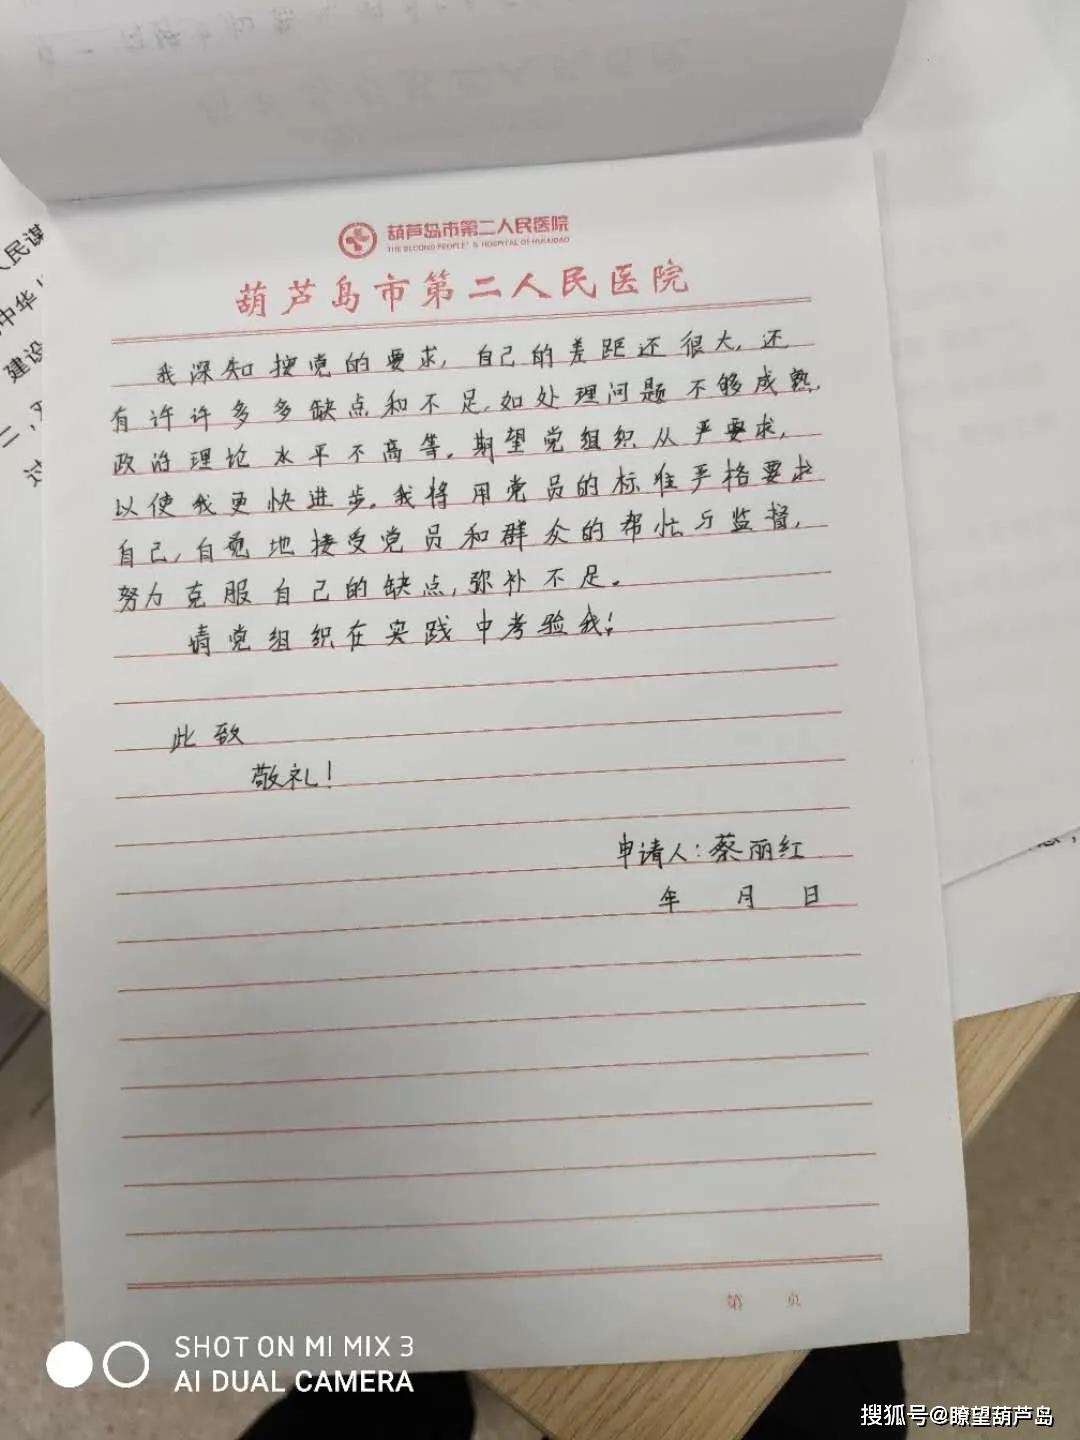 人民谋
中华
建设
二、
葫芦岛市第二人民医院
THE SECOND PEOPLE'S HOSPITAL OF HULUDAO
葫芦岛市第二人民医院
我深知按党的要求,自己的差距还很大,还
有许许多多缺点和不足,如处理问题不够成熟,
政治理论水平不高等。期望党组织从严要求,
以使我更快进步。我将用党员的标准严格要求
自己,自觉地接受党员和群众的帮忙与监督,
努力克服自己的缺点,弥补不足。
请党组织在实践中考验我!
此致
敬礼!
申请人:蔡丽红
年 月 日
第 页
SHOT ON MI MIX 3
AI DUAL CAMERA
搜狐号@瞭望葫芦岛